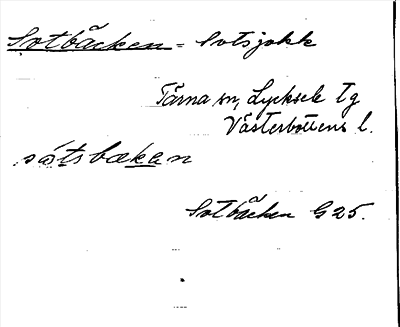 Sotbäcken = Sotsjokk
Tärna sn, Lycksele tg
Västerbottens l.
sótsbækan
Sotbäcken G 25.